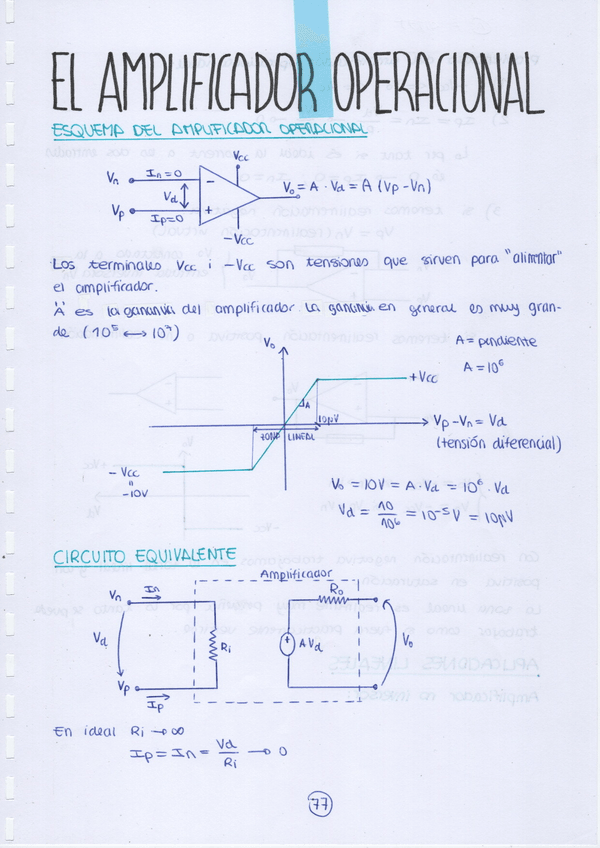 EL AMPLIFICADOR OPERACIONAL
ESQUEMA DEL AMPLIFICADOR OPERACIONAL
Vn In=0 Vcc
Vd − V₀ = A · Vd = A (Vp - Vn)
Vp Ip=0 +
−Vcc
Los terminales Vcc i −Vcc son tensiones que sirven para "alimentar"
el amplificador.
'A' es la ganancia del amplificador. La ganancia en general es muy gran-
de (10⁵ ⟷ 10⁷)
V₀ A = pendiente
A = 10⁶
+Vcc
A
10µV Vp-Vn = Vd
ZONA LINEAL (tensión diferencial)
− Vcc
"
−10V
V₀ = 10V = A · Vd = 10⁶ · Vd
Vd = 10/10⁶ = 10⁻⁵ V = 10µV
CIRCUITO EQUIVALENTE
Amplificador
Vn In R₀
Vd Ri + A Vd V₀
Vp Ip
En ideal Ri → ∞
Ip = In = Vd/Ri → 0
77